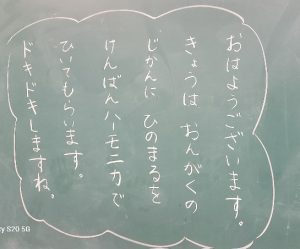 おはようございます。
きょうは おんがくの
じかんに ひのまるを
けんばんハーモニカで
ひいてもらいます。
ドキドキしますね。
y S20 5G